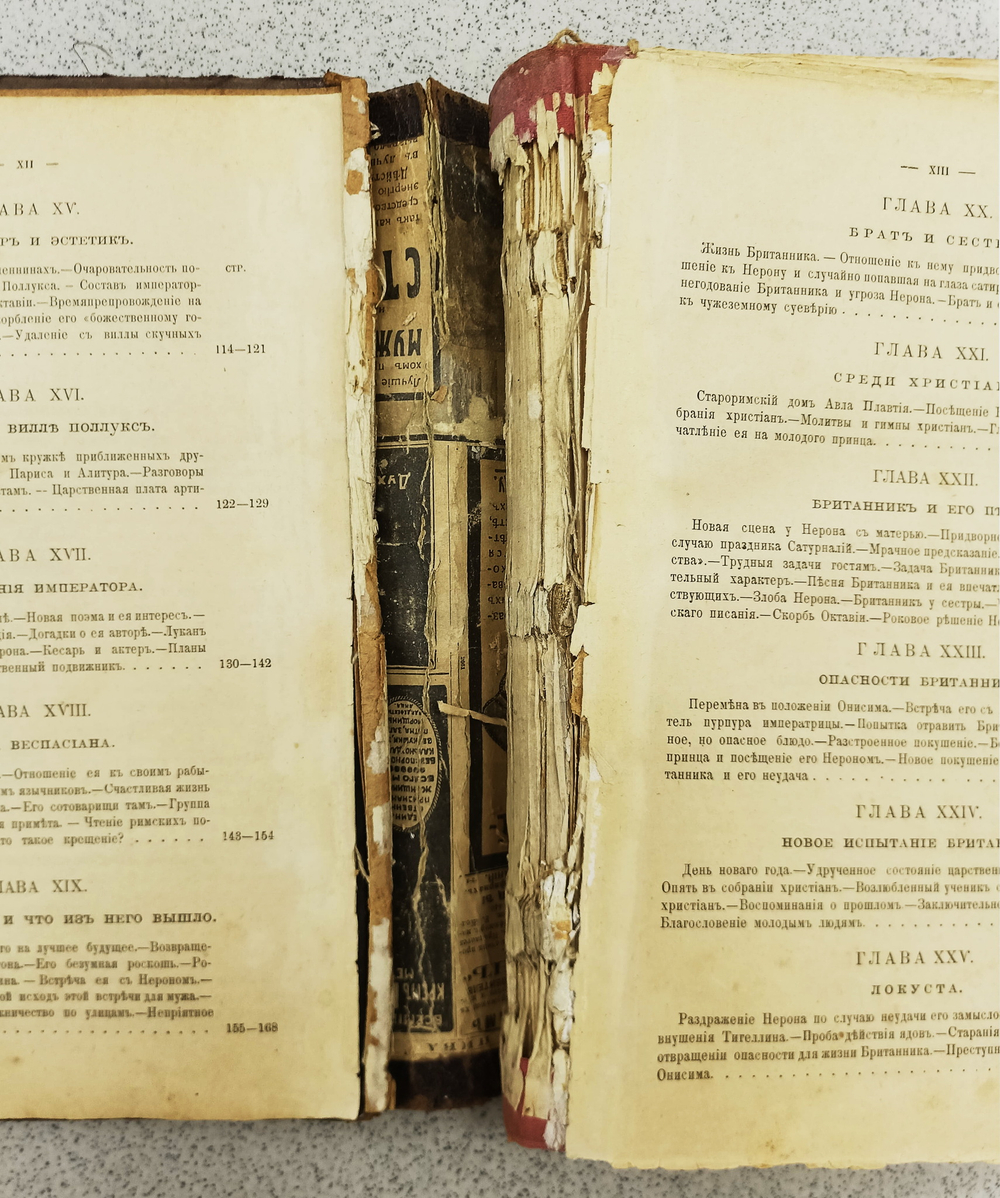 — XII —
АВА XV.
РЪ И ЭСТЕТИКЪ.
стр.
Очаровательность по-
Поллукса. – Составъ император-
ктавіи.—Времяпрепровожденіе на
корбленіе его «божественному го-
.—Удаленіе съ виллы скучныхъ
. . . . . . . . . . . . . . . 114—121
АВА XVI.
ВИЛЛѢ ПОЛЛУКСЪ.
мъ кружкѣ приближенныхъ дру-
Париса и Алитура.—Разговоры
тамъ. — Царственная плата арти-
. . . . . . . . . . . . . . . 122—129
АВА XVII.
НІЯ ИМПЕРАТОРА.
лѣ.—Новая поэма и ея интересъ.—
дія.—Догадки о ея авторѣ.—Луканъ
рона.—Кесарь и актеръ.—Планы
твенный подвижникъ. . . . . . . 130—142
АВА XVIII.
ВЕСПАСІАНА.
.—Отношеніе ея къ своимъ рабы-
мъ язычниковъ.—Счастливая жизнь
а.—Его сотоварищи тамъ.—Группа
я примѣта. — Чтеніе римскихъ по-
то такое крещеніе? . . . . . . 143—154
ЛАВА XIX.
И ЧТО ИЗЪ НЕГО ВЫШЛО.
го на лучшее будущее.—Возвраще-
тона.—Его безумная роскошь.—Ро-
ина. — Встрѣча ея съ Нерономъ.—
ой исходъ этой встрѣчи для мужа.—
жничество по улицамъ.—Непріятное
. . . . . . . . . . . . . . . 155—168
Лучшіе
МУЖ
СТ
такъ на
средство
энергію
Дѣйст
въ лучш
Дух
КРЕМЪ
— XIII —
ГЛАВА XX.
БРАТЪ И СЕСТ
Жизнь Британника. — Отношеніе къ нему придво
шеніе къ Нерону и случайно попавшая на глаза сатир
негодованіе Британника и угроза Нерона.—Братъ и
къ чужеземному суевѣрію . . . . . . . . . . .
ГЛАВА XXI.
СРЕДИ ХРИСТІА
Староримскій домъ Авла Плавтія.—Посѣщеніе
бранія христіанъ.—Молитвы и гимны христіанъ.—Г
чатлѣніе ея на молодого принца. . . . . . . .
ГЛАВА XXII.
БРИТАННИКЪ И ЕГО П
Новая сцена у Нерона съ матерью.—Придворн
случаю праздника Сатурналій.—Мрачное предсказаніе.
ства».—Трудныя задачи гостямъ.—Задача Британник
тельный характеръ.—Пѣсня Британника и ея впечат
ствующихъ.—Злоба Нерона.—Британникъ у сестры.—
скаго писанія.—Скорбь Октавіи.—Роковое рѣшеніе Н
ГЛАВА XXIII.
ОПАСНОСТИ БРИТАННИ
Перемѣна въ положеніи Онисима.—Встрѣча его съ
тель пурпура императрицы.—Попытка отравить Бри
ное, но опасное блюдо.—Разстроенное покушеніе.—Б
принца и посѣщеніе его Нерономъ.—Новое покушеніе
танника и его неудача . . . . . . . . . . . . .
ГЛАВА XXIV.
НОВОЕ ИСПЫТАНІЕ БРИТА
День новаго года.—Удрученное состояніе царствен
Опять въ собраніи христіанъ.—Возлюбленный ученикъ
христіанъ.—Воспоминанія о прошломъ—Заключительн
Благословеніе молодымъ людямъ. . . . . . . . .
ГЛАВА XXV.
ЛОКУСТА.
Раздраженіе Нерона по случаю неудачи его замысло
внушенія Тигеллина.—Проба дѣйствія ядовъ.—Старанія
отвращеніи опасности для жизни Британника.—Преступ
Онисима. . . . . . . . . . . . . . . . . . .